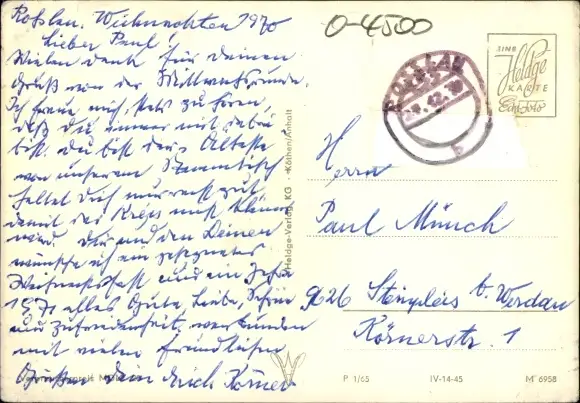 Roßlau, Weihnachten 1970
Lieber Paul!
Vielen Dank für deinen
Gruß von der Mittwochsrunde.
Ich freue mich, stets zu hören,
daß Du immer mit dabei
bist. Du bist der Älteste
von unserem Stammtisch
haltet Dich nur recht gut,
damit der Kreis nicht kleiner
wird. Dir und den Deinen
wünsche ich ein gesegnetes
Weihnachtsfest und ein Jahr
1971 alles Gute, Liebe, Schöne
und Zufriedenheit, verbunden
mit vielen freundlichen
Grüßen Dein Erich Körner
0-4500
ROSSLAU
EINE
Heldge
KARTE
Echt Foto
Herrn
Paul Münch
9626 Steinpleis b. Werdau
Körnerstr. 1
Heldge-Verlag KG · Köthen/Anhalt
P 1/65 IV-14-45 M 6958